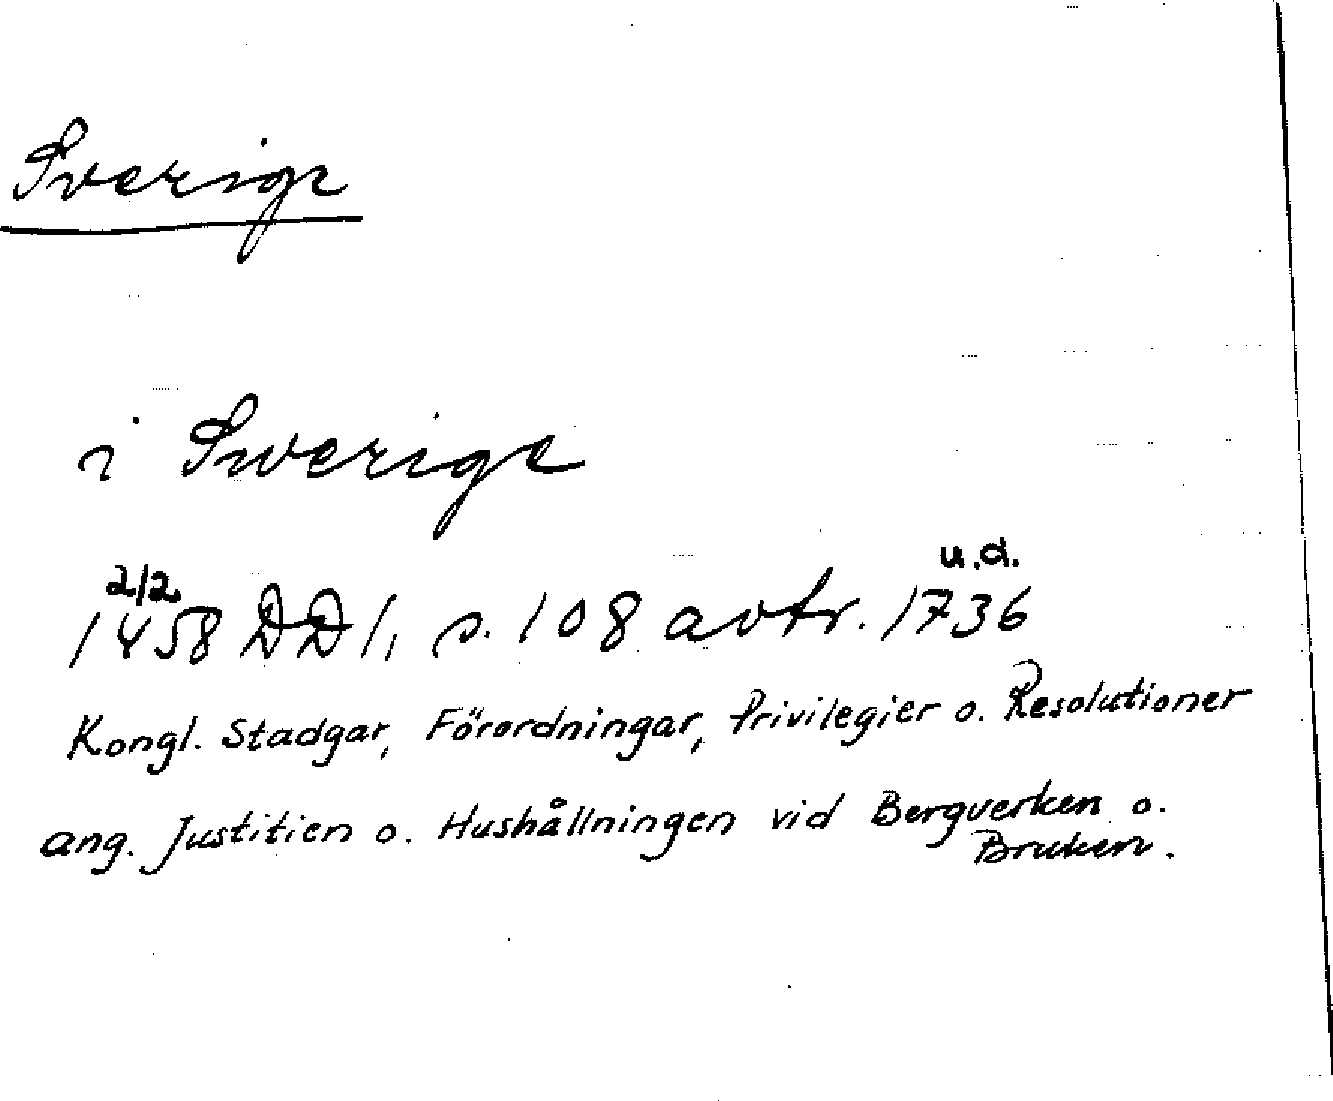 Sverige
i Swerige
2/2 u.d.
1458 DD 1, s. 108 avtr. 1736
Kongl. Stadgar, Förordningar, Privilegier o. Resolutioner
ang. Justitien o. Hushållningen vid Bergverken o.
Bruken.